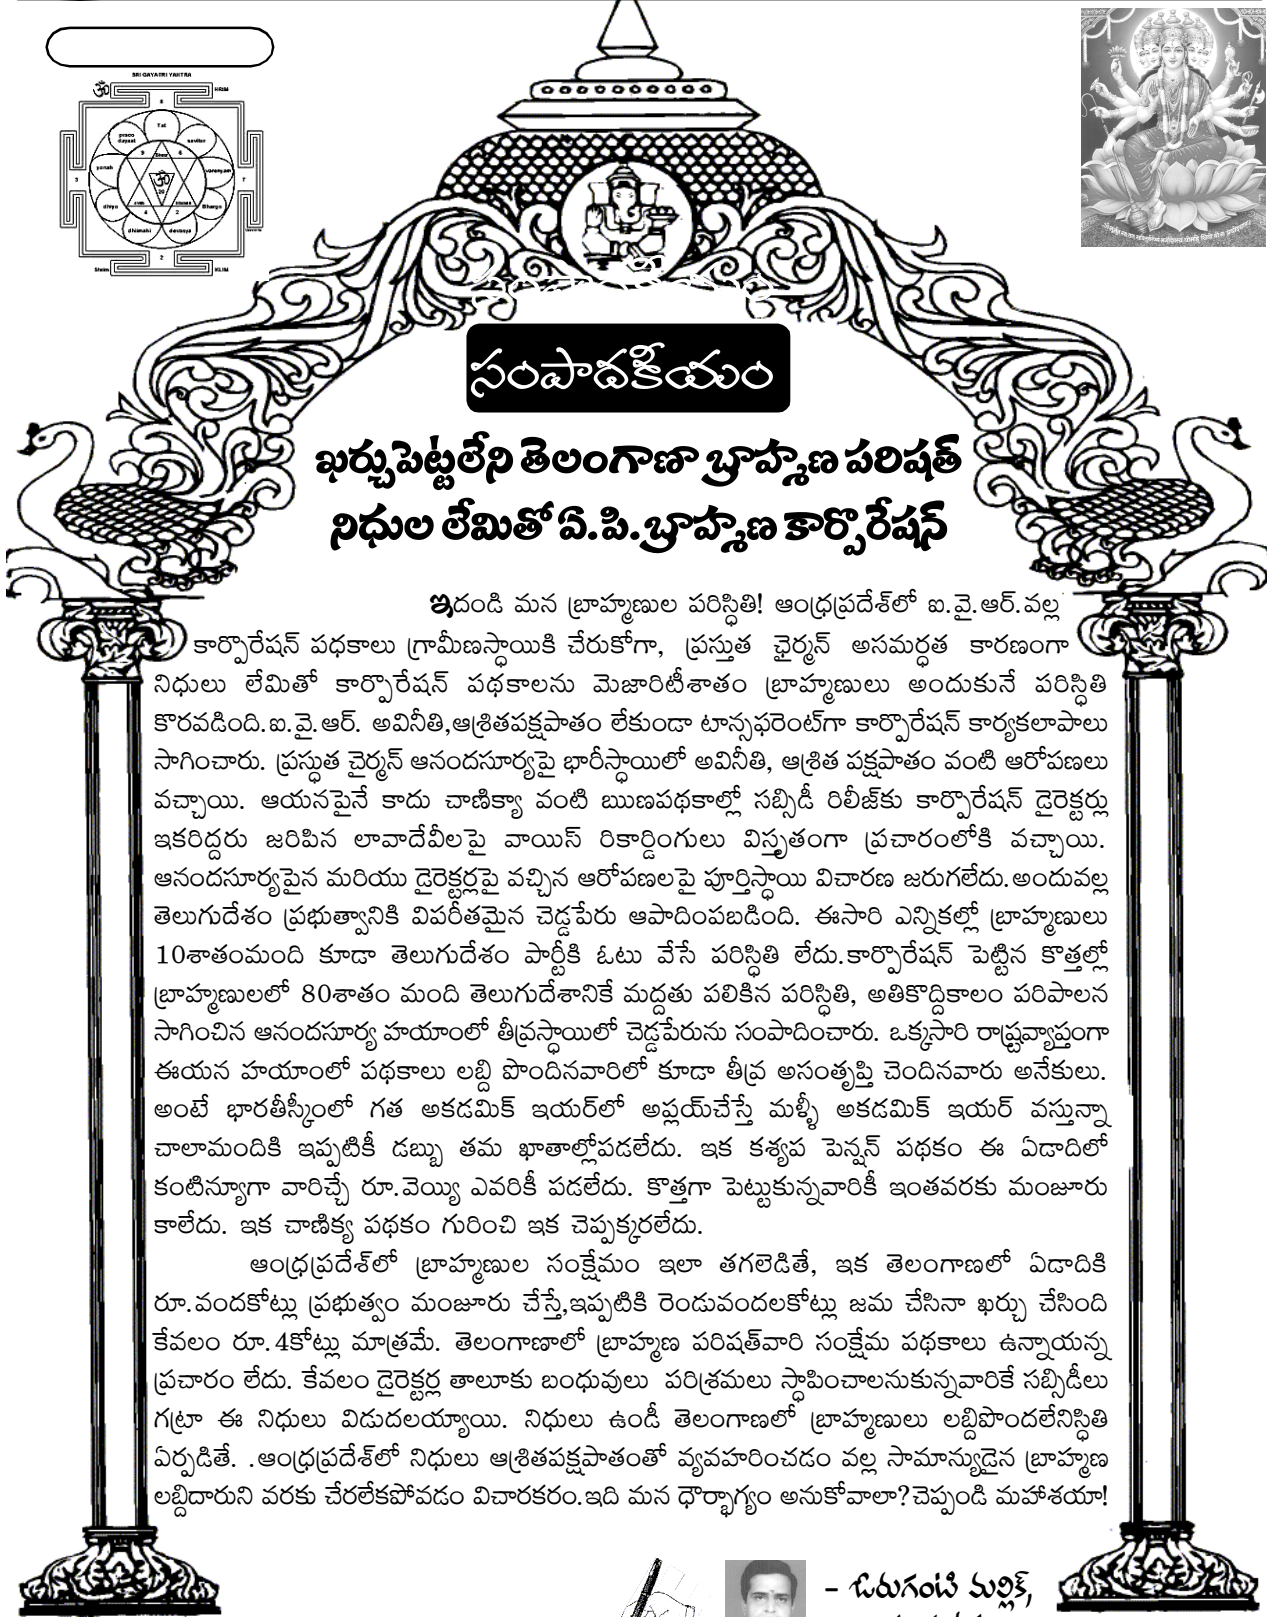 SRI GAYATRI YAHTRA
HRIM
ॐ
8
Tat
praco
dayaat
savitur
9
6
yonah
varenyam
3
ॐ
7
dhiyo
Bharga
4
2
dhimahi
devasya
2
Shrim
KLIM
సంపాదకీయం
ఖర్చుపెట్టలేని తెలంగాణా బ్రాహ్మణ పరిషత్
నిధుల లేమితో ఏ.పి.బ్రాహ్మణ కార్పొరేషన్
ఇదండి మన బ్రాహ్మణుల పరిస్థితి! ఆంధ్రప్రదేశ్‌లో ఐ.వై.ఆర్.వల్ల
కార్పొరేషన్ పధకాలు గ్రామీణస్థాయికి చేరుకోగా, ప్రస్తుత ఛైర్మన్ అసమర్ధత కారణంగా
నిధులు లేమితో కార్పొరేషన్ పథకాలను మెజారిటీశాతం బ్రాహ్మణులు అందుకునే పరిస్థితి
కొరవడింది.ఐ.వై.ఆర్. అవినీతి,ఆశ్రితపక్షపాతం లేకుండా టాన్సఫరెంట్‌గా కార్పొరేషన్ కార్యకలాపాలు
సాగించారు. ప్రస్తుత చైర్మన్ ఆనందసూర్యపై భారీస్థాయిలో అవినీతి, ఆశ్రిత పక్షపాతం వంటి ఆరోపణలు
వచ్చాయి. ఆయనపైనే కాదు చాణిక్యా వంటి ఋణపథకాల్లో సబ్సిడీ రిలీజ్‌కు కార్పొరేషన్ డైరెక్టర్లు
ఇకరిద్దరు జరిపిన లావాదేవీలపై వాయిస్ రికార్డింగులు విస్తృతంగా ప్రచారంలోకి వచ్చాయి.
ఆనందసూర్యపైన మరియు డైరెక్టర్లపై వచ్చిన ఆరోపణలపై పూర్తిస్థాయి విచారణ జరుగలేదు.అందువల్ల
తెలుగుదేశం ప్రభుత్వానికి విపరీతమైన చెడ్డపేరు ఆపాదింపబడింది. ఈసారి ఎన్నికల్లో బ్రాహ్మణులు
10శాతంమంది కూడా తెలుగుదేశం పార్టీకి ఓటు వేసే పరిస్థితి లేదు.కార్పొరేషన్ పెట్టిన కొత్తల్లో
బ్రాహ్మణులలో 80శాతం మంది తెలుగుదేశానికే మద్దతు పలికిన పరిస్థితి, అతికొద్దికాలం పరిపాలన
సాగించిన ఆనందసూర్య హయాంలో తీవ్రస్థాయిలో చెడ్డపేరును సంపాదించారు. ఒక్కసారి రాష్ట్రవ్యాప్తంగా
ఈయన హయాంలో పథకాలు లబ్ది పొందినవారిలో కూడా తీవ్ర అసంతృప్తి చెందినవారు అనేకులు.
అంటే భారతీస్కీంలో గత అకడమిక్ ఇయర్‌లో అప్లయ్‌చేస్తే మళ్ళీ అకడమిక్ ఇయర్ వస్తున్నా
చాలామందికి ఇప్పటికీ డబ్బు తమ ఖాతాల్లోపడలేదు. ఇక కశ్యప పెన్షన్ పథకం ఈ ఏడాదిలో
కంటిన్యూగా వారిచ్చే రూ.వెయ్యి ఎవరికీ పడలేదు. కొత్తగా పెట్టుకున్నవారికీ ఇంతవరకు మంజూరు
కాలేదు. ఇక చాణిక్య పథకం గురించి ఇక చెప్పక్కరలేదు.
ఆంధ్రప్రదేశ్‌లో బ్రాహ్మణుల సంక్షేమం ఇలా తగలెడితే, ఇక తెలంగాణలో ఏడాదికి
రూ.వందకోట్లు ప్రభుత్వం మంజూరు చేస్తే,ఇప్పటికి రెండువందలకోట్లు జమ చేసినా ఖర్చు చేసింది
కేవలం రూ.4కోట్లు మాత్రమే. తెలంగాణాలో బ్రాహ్మణ పరిషత్‌వారి సంక్షేమ పథకాలు ఉన్నాయన్న
ప్రచారం లేదు. కేవలం డైరెక్టర్ల తాలూకు బంధువులు పరిశ్రమలు స్థాపించాలనుకున్నవారికే సబ్సిడీలు
గట్రా ఈ నిధులు విడుదలయ్యాయి. నిధులు ఉండీ తెలంగాణలో బ్రాహ్మణులు లబ్దిపొందలేనిస్థితి
ఏర్పడితే. .ఆంధ్రప్రదేశ్‌లో నిధులు ఆశ్రితపక్షపాతంతో వ్యవహరించడం వల్ల సామాన్యుడైన బ్రాహ్మణ
లబ్దిదారుని వరకు చేరలేకపోవడం విచారకరం.ఇది మన ధౌర్భాగ్యం అనుకోవాలా?చెప్పండి మహాశయా!
- ఓరుగంటి మల్లిక్,